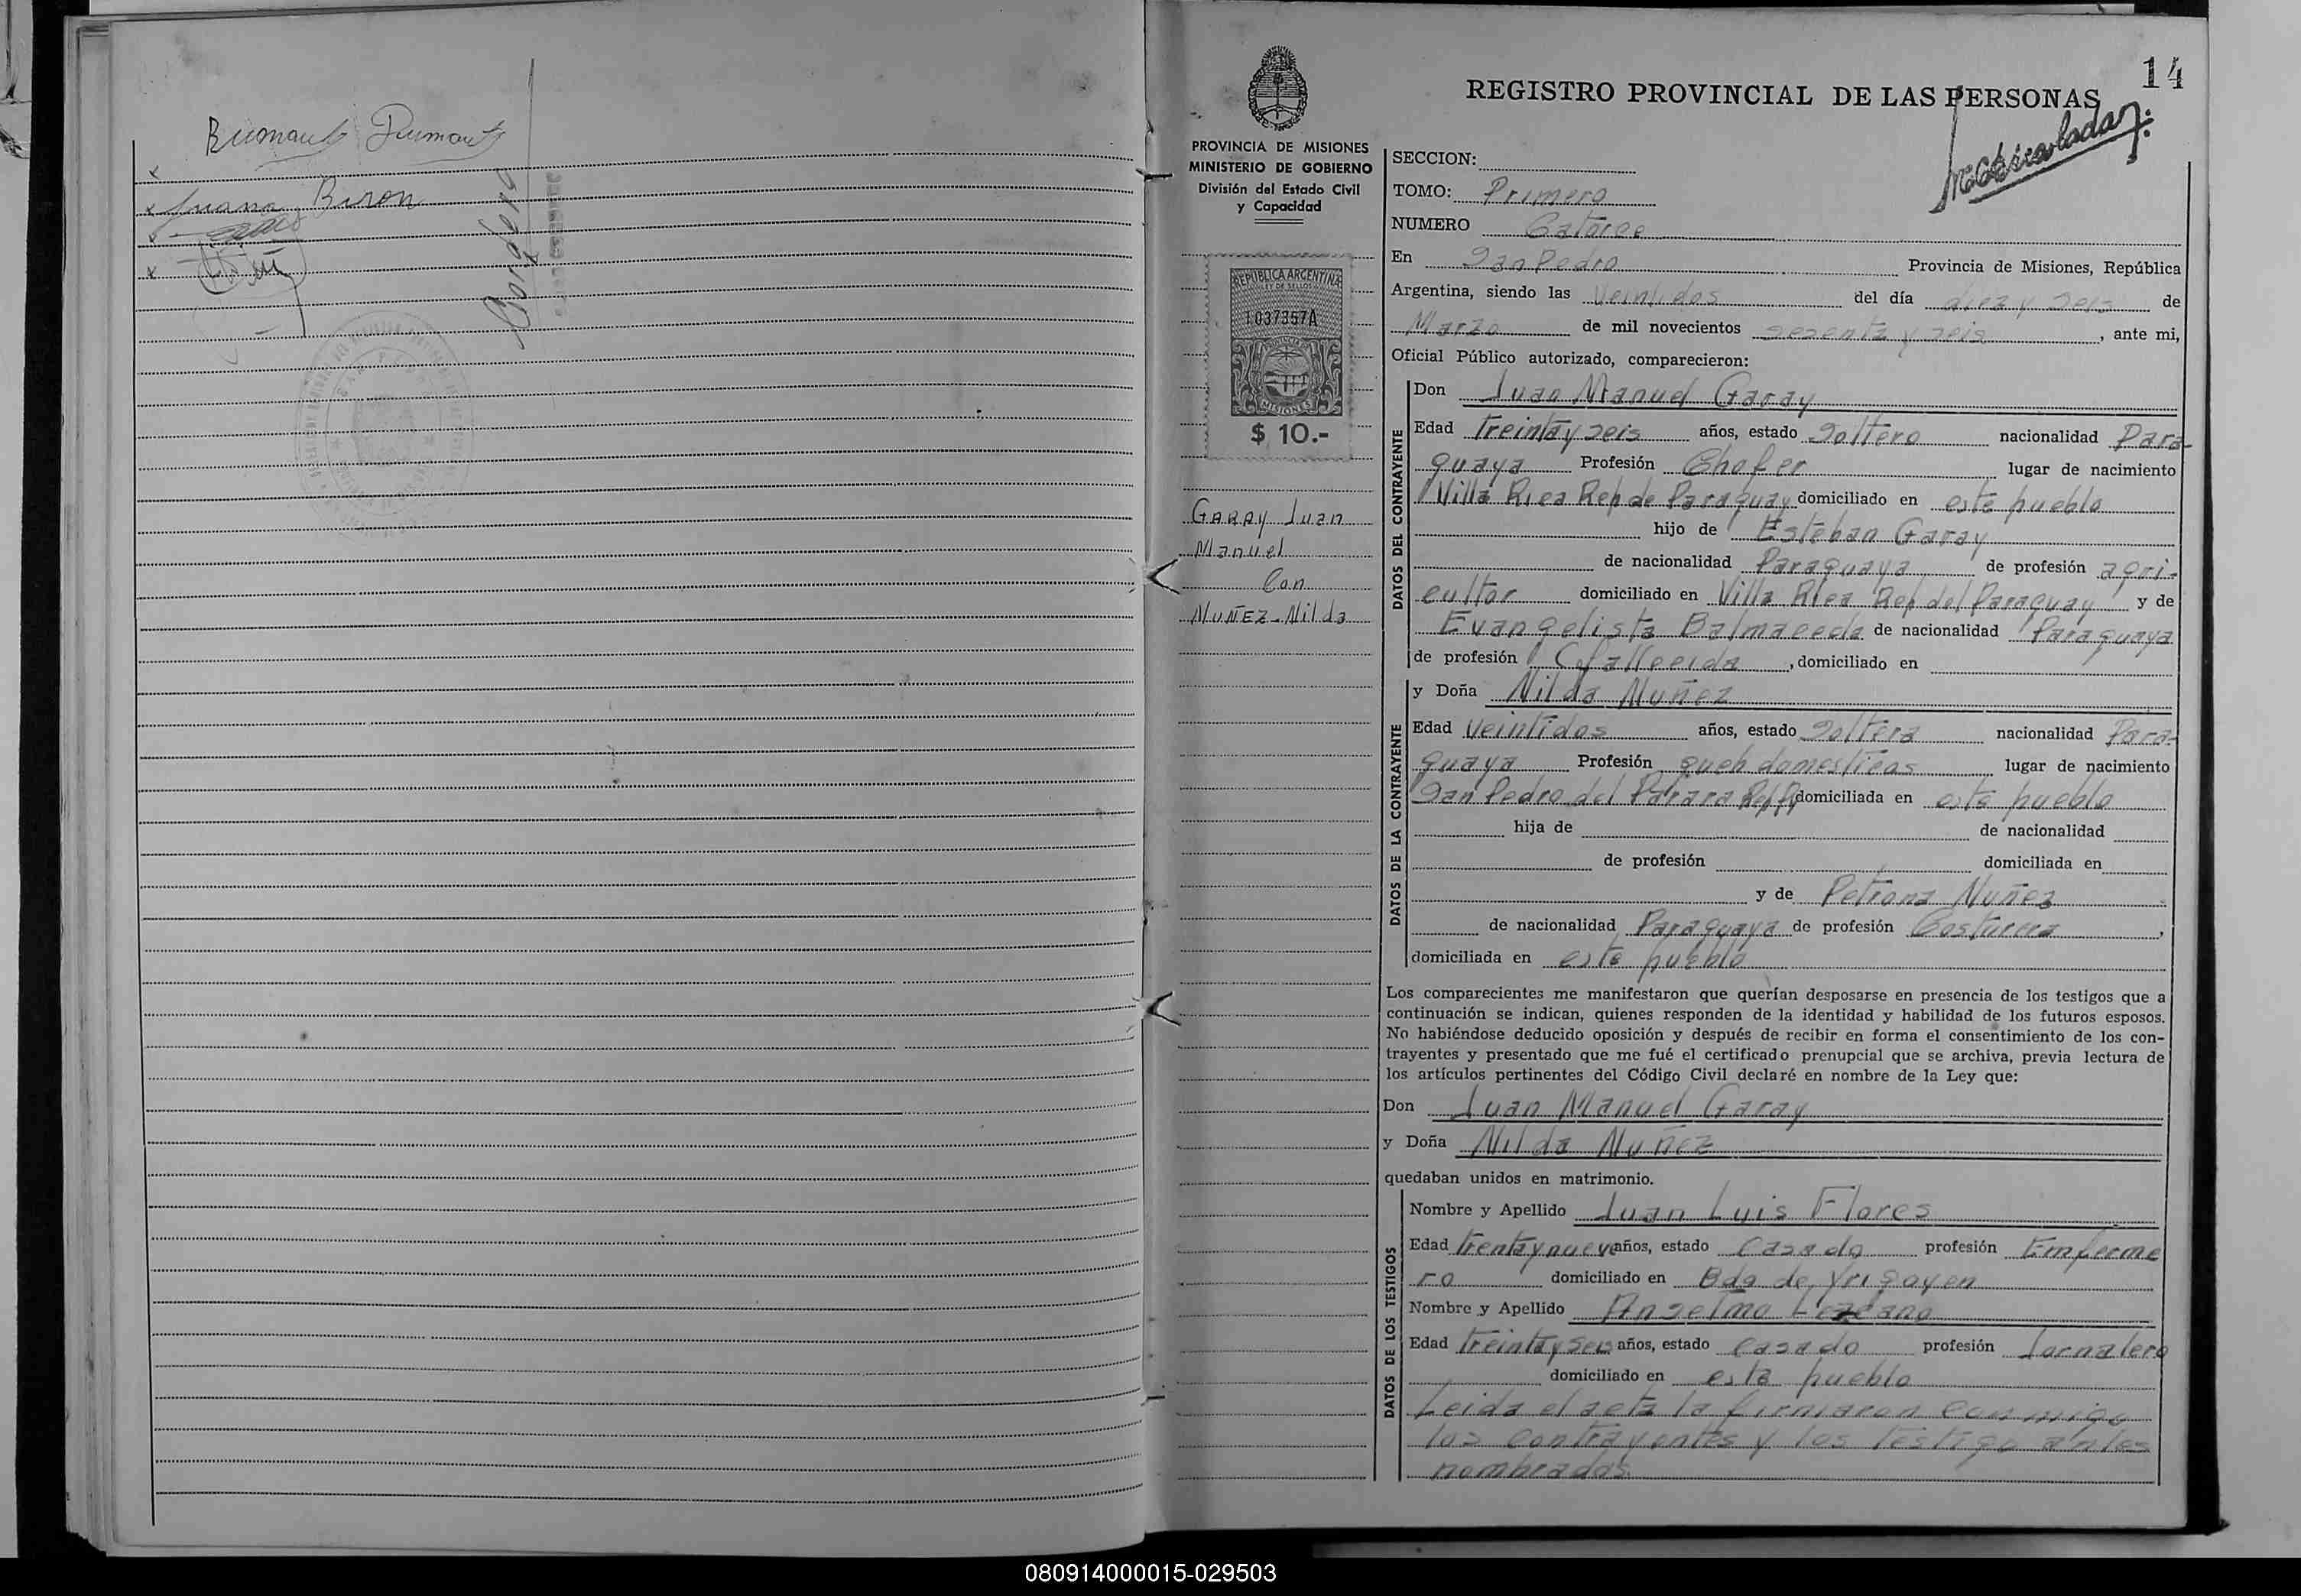 Juana Biron
14
REGISTRO PROVINCIAL DE LAS PERSONAS
PROVINCIA DE MISIONES
MINISTERIO DE GOBIERNO
División del Estado Civil
y Capacidad
REPUBLICA ARGENTINA
LEY DE SELLOS
1037357A
PROVINCIA DE
MISIONES
$ 10.-
GARAY Juan
Manuel
Con
NUÑEZ - Nilda
SECCION:
TOMO: Primero
NUMERO Catorce
En San Pedro Provincia de Misiones, República
Argentina, siendo las Veintidos del día diez y seis de
Marzo de mil novecientos sesenta y seis, ante mi,
Oficial Público autorizado, comparecieron:
DATOS DEL CONTRAYENTE
Don Juan Manuel Garay
Edad Treinta y seis años, estado Soltero nacionalidad Para-
guaya Profesión Chofer lugar de nacimiento
Villa Rica Rep de Paraguay domiciliado en este pueblo
hijo de Esteban Garay
de nacionalidad Paraguaya de profesión agri-
cultor domiciliado en Villa Rica Rep del Paraguay y de
Evangelista Balmaceda de nacionalidad Paraguaya
de profesión fallecida, domiciliado en
DATOS DE LA CONTRAYENTE
y Doña Nilda Nuñez
Edad Veintidos años, estado Soltera nacionalidad Para-
guaya Profesión queh domesticas lugar de nacimiento
San Pedro del Parana Rep domiciliada en este pueblo
hija de de nacionalidad
de profesión domiciliada en
y de Petrona Nuñez
de nacionalidad Paraguaya de profesión Costurera,
domiciliada en este pueblo
Los comparecientes me manifestaron que querían desposarse en presencia de los testigos que a
continuación se indican, quienes responden de la identidad y habilidad de los futuros esposos.
No habiéndose deducido oposición y después de recibir en forma el consentimiento de los con-
trayentes y presentado que me fué el certificado prenupcial que se archiva, previa lectura de
los artículos pertinentes del Código Civil declaré en nombre de la Ley que:
Don Juan Manuel Garay
y Doña Nilda Nuñez
quedaban unidos en matrimonio.
DATOS DE LOS TESTIGOS
Nombre y Apellido Juan Luis Flores
Edad trentaynueve años, estado Casado profesión Emferme
ro domiciliado en Bdo de Yrigoyen
Nombre y Apellido Anselmo Lezcano
Edad treinta y seis años, estado Casado profesión Jornalero
domiciliado en este pueblo
Leida el acta la firmaron conmigo
los contrayentes y los testigo antes
nombrados
080914000015-029503